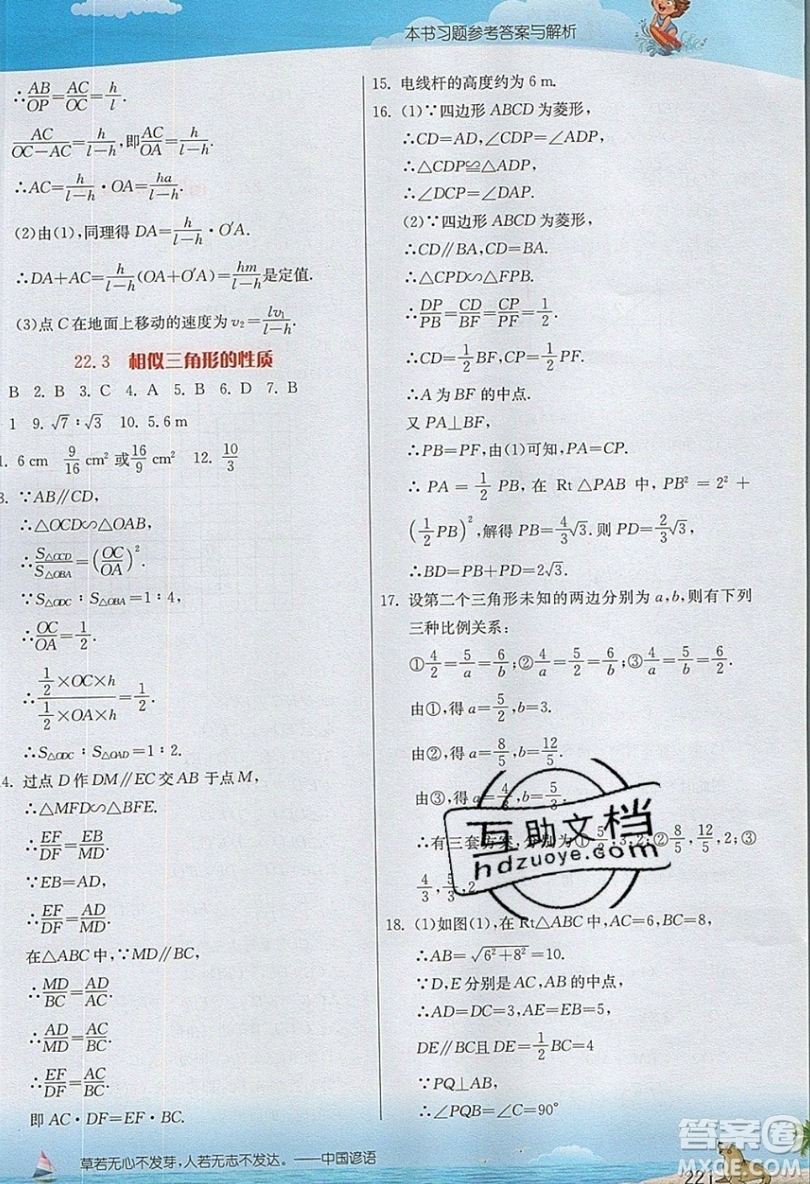 本书习题参考答案与解析
∴AB/OP=AC/OC=h/l.
AC/(OC−AC)=h/(l−h),即AC/OA=h/(l−h).
∴AC=h/(l−h)·OA=h/(l−h).
(2)由(1),同理得 DA=h/(l−h)·O′A.
∴DA+AC=h/(l−h)(OA+O′A)=hm/(l−h)是定值.
(3)点 C 在地面上移动的速度为 v₂=lv₁/(l−h).
22.3 相似三角形的性质
B 2. B 3. C 4. A 5. B 6. D 7. B
1 9. √7∶√3 10. 5.6 m
1. 6 cm 9/16 cm² 或16/9 cm² 12. 10/3
3. ∵AB∥CD,
∴△OCD∽△OAB,
∴S△OCD/S△OBA=(OC/OA)².
∵S△ODC∶S△OBA=1∶4,
∴OC/OA=1/2.
∴(1/2×OC×h)/(1/2×OA×h)=1/2.
∴S△ODC∶S△OAD=1∶2.
4. 过点 D 作 DM∥EC 交 AB 于点 M,
∴△MFD∽△BFE.
∴EF/DF=EB/MD.
∵EB=AD,
∴EF/DF=AD/MD.
在△ABC 中,∵MD∥BC,
∴MD/BC=AD/AC.
∴AD/MD=AC/BC.
∴EF/DF=AC/BC.
即 AC·DF=EF·BC.
15. 电线杆的高度约为 6 m.
16. (1)∵四边形 ABCD 为菱形,
∴CD=AD,∠CDP=∠ADP,
∴△CDP≌△ADP,
∴∠DCP=∠DAP.
(2)∵四边形 ABCD 为菱形,
∴CD∥BA,CD=BA,
∴△CPD∽△FPB.
∴DP/PB=CD/BF=CP/PF=1/2.
∴CD=1/2BF,CP=1/2PF.
∴A 为 BF 的中点.
又 PA⊥BF,
∴PB=PF,由(1)可知,PA=CP.
∴PA=1/2PB,在 Rt△PAB 中,PB²=2²+
(1/2PB)²,解得 PB=4/3√3.则 PD=2/3√3,
∴BD=PB+PD=2√3.
17. 设第二个三角形未知的两边分别为 a,b,则有下列
三种比例关系:
①4/2=5/a=6/b;②4/a=5/2=6/b;③4/a=5/b=6/2.
由①,得 a=5/2,b=3.
由②,得 a=8/5,b=12/5.
由③,得 a=4/3,b=5/3.
∴有三套方案,分别为①5/2,3,2;②8/5,12/5,2;③
4/3,5/3,2
18. (1)如图(1),在 Rt△ABC 中,AC=6,BC=8,
∴AB=√(6²+8²)=10.
∵D,E 分别是 AC,AB 的中点,
∴AD=DC=3,AE=EB=5,
DE∥BC且 DE=1/2BC=4
∵PQ⊥AB,
∴∠PQB=∠C=90°
互助文档
hdzuoye.com
草若无心不发芽,人若无志不发达。——中国谚语
221
答案圈
MXQE.COM